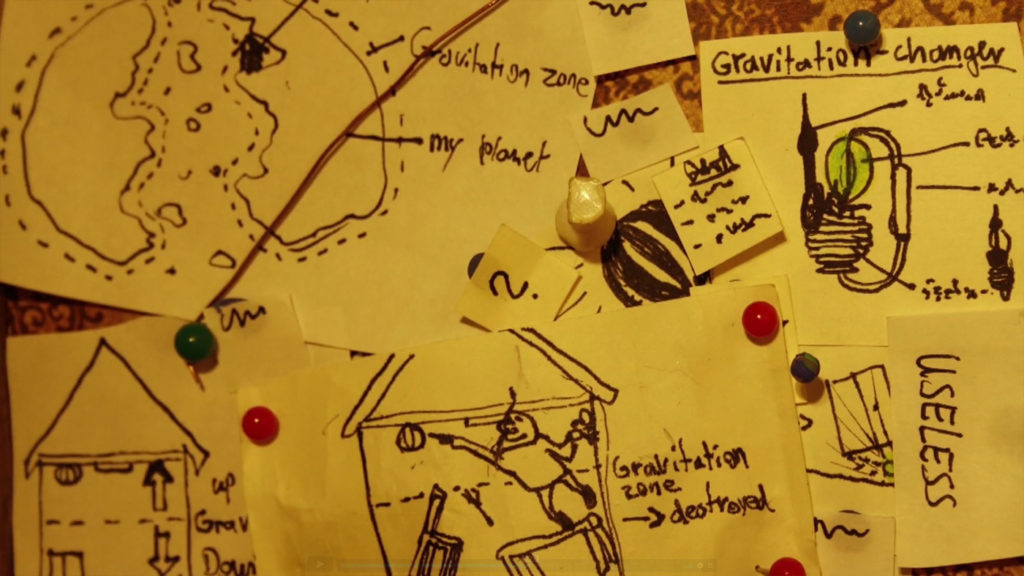 Gravitation zone
my planet
Gravitation-changer
?
USELESS
up
Grav
Down
Gravitation
zone
→ destroyed